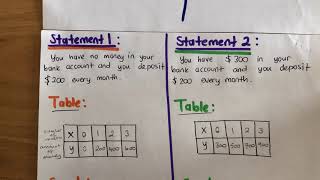 Statement 1:
You have no money in your
bank account and you deposit
$200 every month.
Table:
X 0 1 2 3
Y 0 200 400 600
Statement 2:
You have $300 in your
bank account and you deposit
$200 every month.
Table:
X 0 1 2 3
Y 300 500 700 900